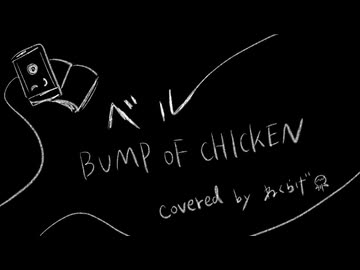 ベル
BUMP OF CHICKEN
covered by ねくらげ